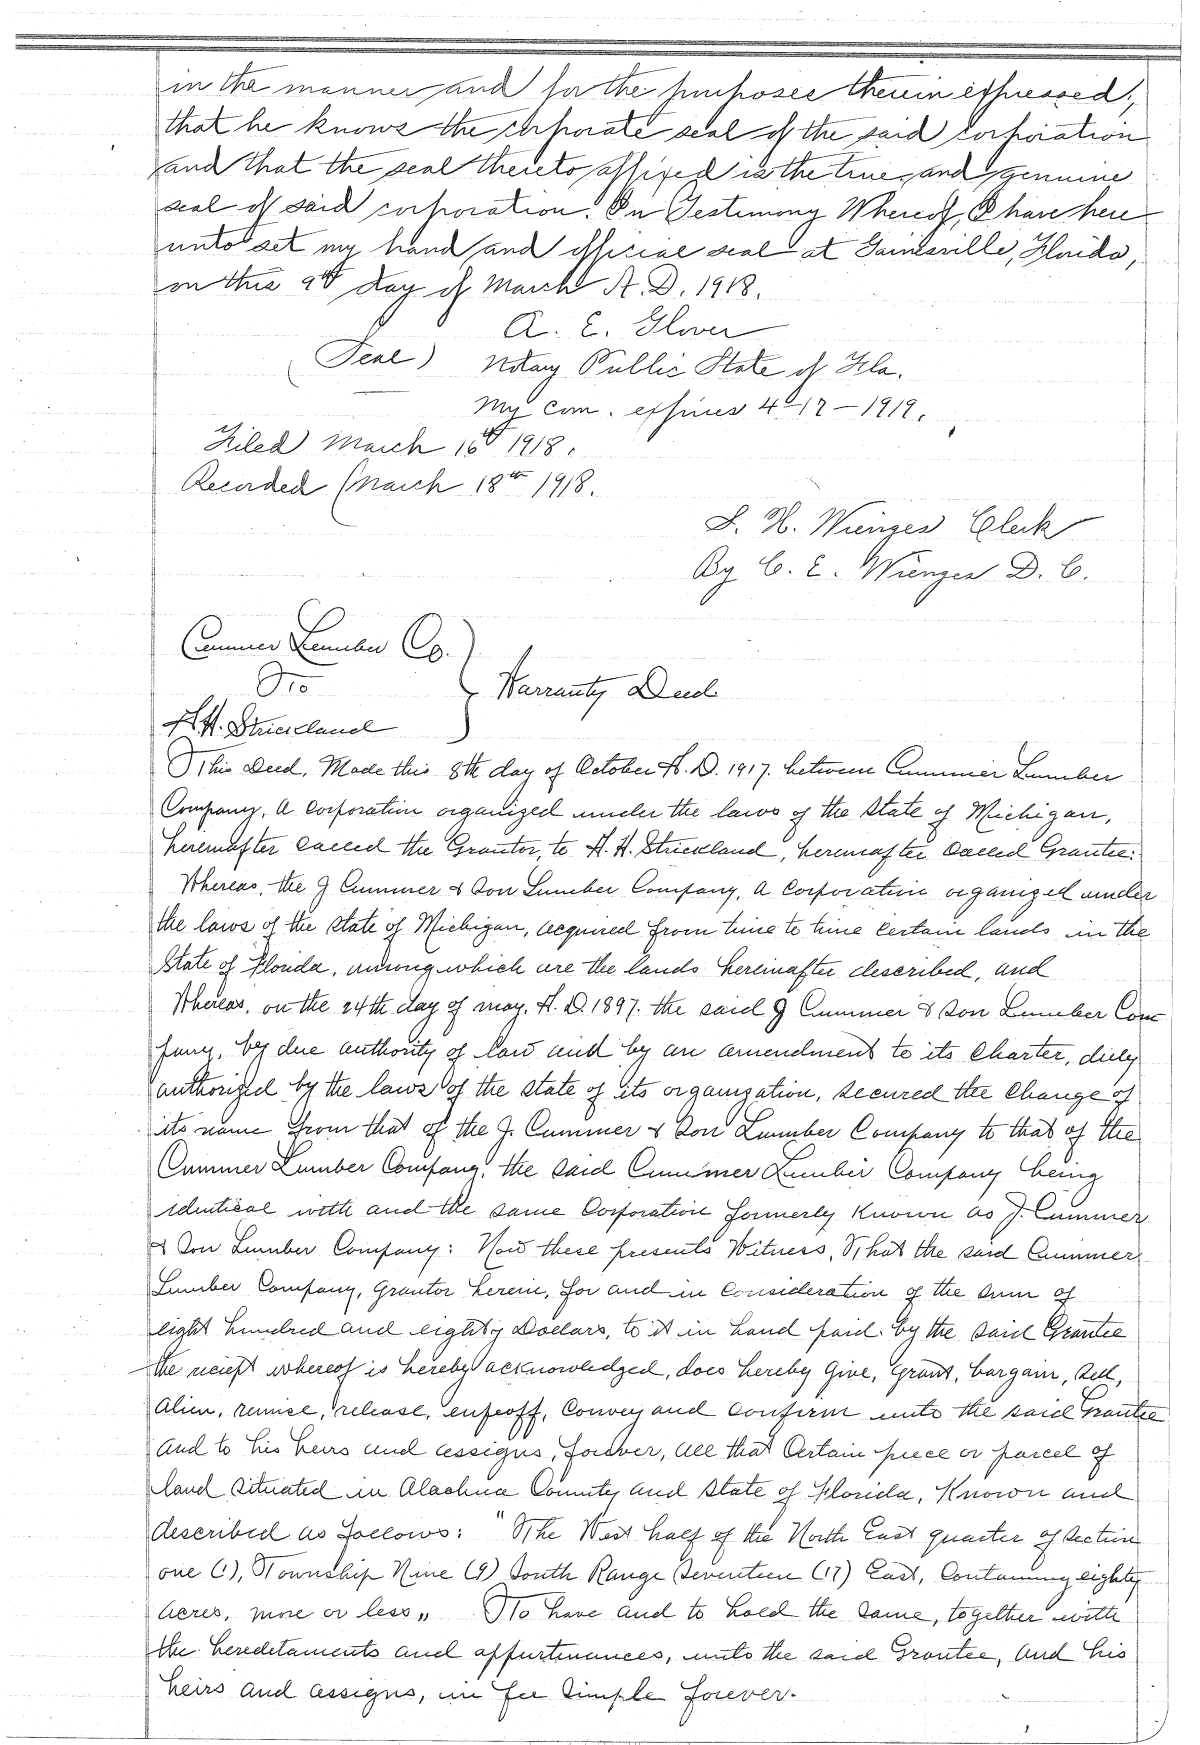 in the manner and for the purposes therein expressed,
that he knows the corporate seal of the said corporation
and that the seal thereto affixed is the true and genuine
seal of said corporation. In Testimony Whereof, I have here
unto set my hand and official seal at Gainesville, Florida,
on this 9th day of March A. D. 1918.
A. E. Glover
(Seal) Notary Public State of Fla.
My com. expires 4-17-1919.
Filed March 16th 1918.
Recorded March 18th 1918.
S. H. Wienges Clerk
By C. E. Wienges D. C.
Cummer Lumber Co.)
To } Warranty Deed
H. H. Strickland
This Deed, Made this 8th day of October A. D. 1917. between Cummer Lumber
Company, A Corporation organized under the laws of the State of Michigan,
hereinafter called the Grantor, to H. H. Strickland, hereinafter called Grantee:
Whereas, the J Cummer & Son Lumber Company, A Corporation organized under
the laws of the state of Michigan, acquired from time to time certain lands in the
State of Florida, among which are the lands hereinafter described, and
Whereas, on the 24th day of may, A. D. 1897. the said J Cummer & Son Lumber Com
pany, by due authority of law and by an amendment to its Charter, duly
authorized by the laws of the state of its organization, secured the change of
its name from that of the J. Cummer & Son Lumber Company to that of the
Cummer Lumber Company, the said Cummer Lumber Company being
identical with and the same Corporation formerly Known as J. Cummer
& Son Lumber Company: Now these presents Witness, That the said Cummer
Lumber Company, Grantor herein, for and in consideration of the sum of
eight hundred and eighty Dollars, to it in hand paid by the said Grantee
the reciept whereof is hereby acknowledged, does hereby Give, Grant, bargain, Sell,
Alien, remise, release, enfeoff, Convey and Confirm unto the said Grantee
And to his heirs and assigns, forever, all that Certain piece or parcel of
land situated in Alachua County and state of Florida, Known and
described as follows: "The West half of the North East quarter of Section
one (1), Township Nine (9) South Range Seventeen (17) East, Containing eighty
Acres, more or less„ To have and to hold the same, together with
the heredetaments and appurtinances, unto the said Grantee, and his
heirs and assigns, in fee simple forever.